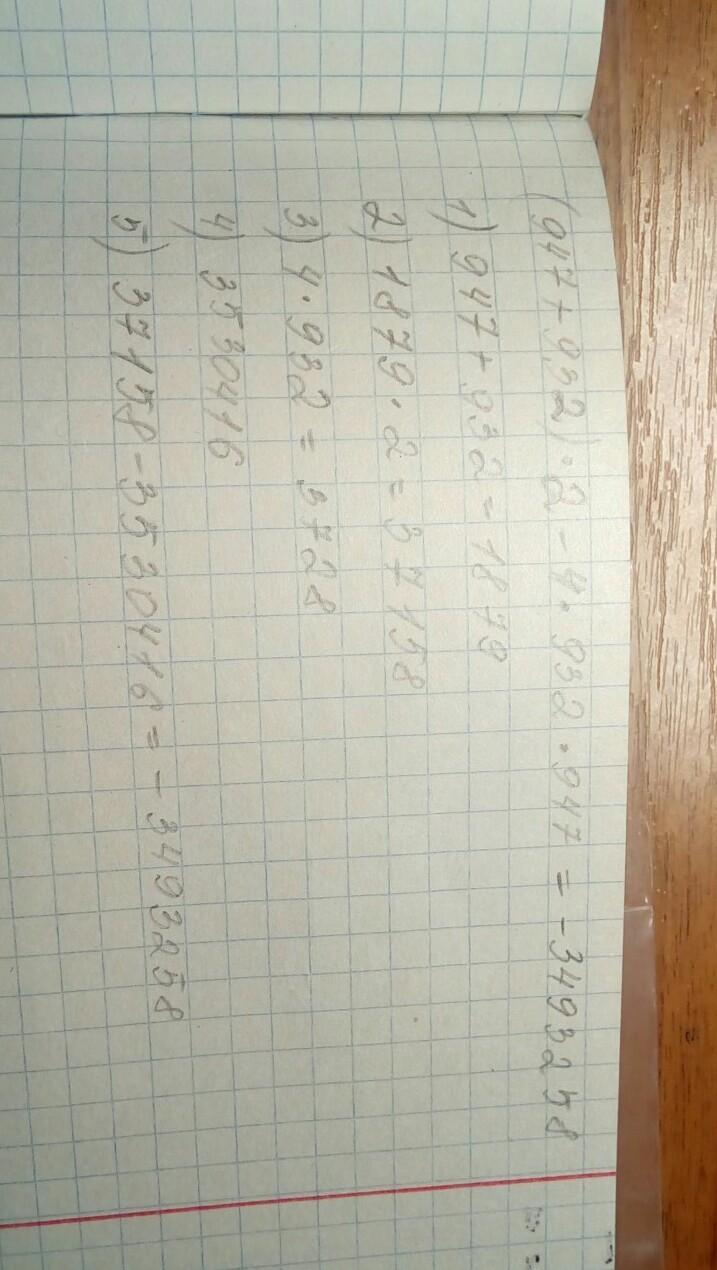 (947+932)·2-4·932·947=-3493258
1) 947+932=1879
2) 1879·2=37158
3) 4·932=3728
4) 3530416
5) 37158-3530416=-3493258